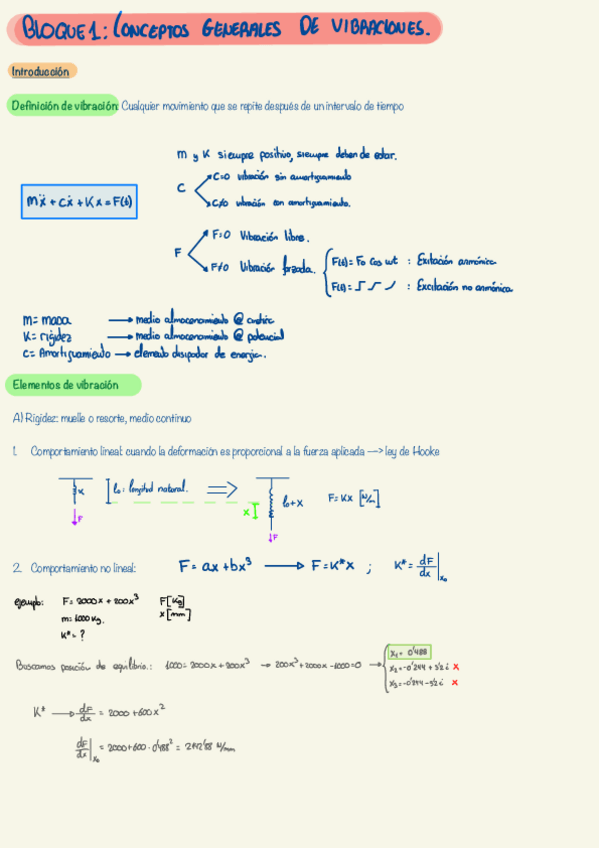 BLOQUE 1: CONCEPTOS GENERALES DE VIBRACIONES.
Introducción
Definición de vibración: Cualquier movimiento que se repite después de un intervalo de tiempo
m y K siempre positivo, siempre deben de estar.
mẍ + cẋ + Kx = F(t)
C
C=0 vibración sin amortiguamiento
C≠0 vibración con amortiguamiento.
F
F=0 Vibración libre.
F≠0 Vibración forzada.
F(t) = Fo cos wt : Exitación armónica
F(t) = : Excitación no armónica.
m = masa → medio almacenamiento @ cinética
K = rigidez → medio almacenamiento @ potencial
C = Amortiguamiento → elemento disipador de energía.
Elementos de vibración
A) Rigidez: muelle o resorte, medio continuo
1. Comportamiento lineal: cuando la deformación es proporcional a la fuerza aplicada —> ley de Hooke
K
lo: longitud natural.
⇒
lo+x
x
F
F
F = Kx [N/m]
2. Comportamiento no lineal: F = ax + bx³ → F = K*x ; K* = dF/dx |x₀
ejemplo: F = 2000x + 200x³ F [Kg]
m = 1000 Kg. x [mm]
K* = ?
Buscamos posición de equilibrio.: 1000 = 2000x + 200x³ → 200x³ + 2000x - 1000 = 0 →
x₁ = 0'488
x₂ = -0'244 + 3'2 i x
x₃ = -0'244 - 3'2 i x
K* → dF/dx = 2000 + 600x²
dF/dx |x₀ = 2000 + 600 · 0'488² = 2142'88 N/mm